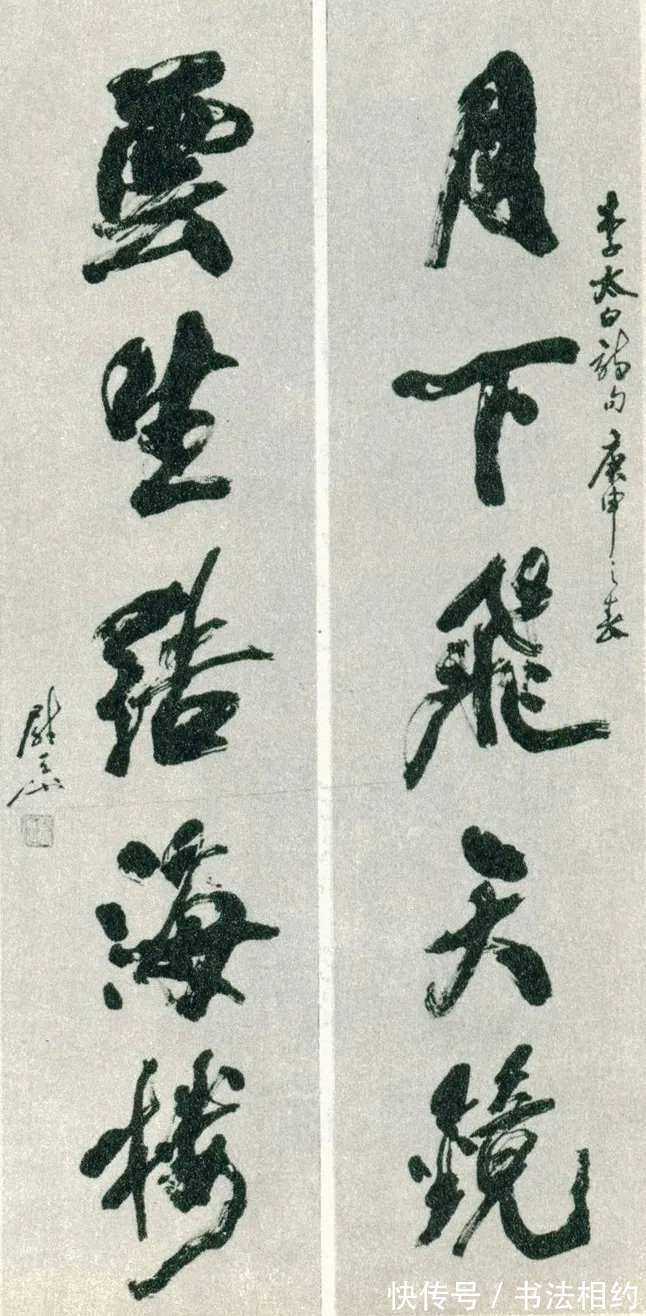 李太白詩句 庚申之春
月下飛天鏡
雲生結海樓
尉天
快传号 / 书法相约